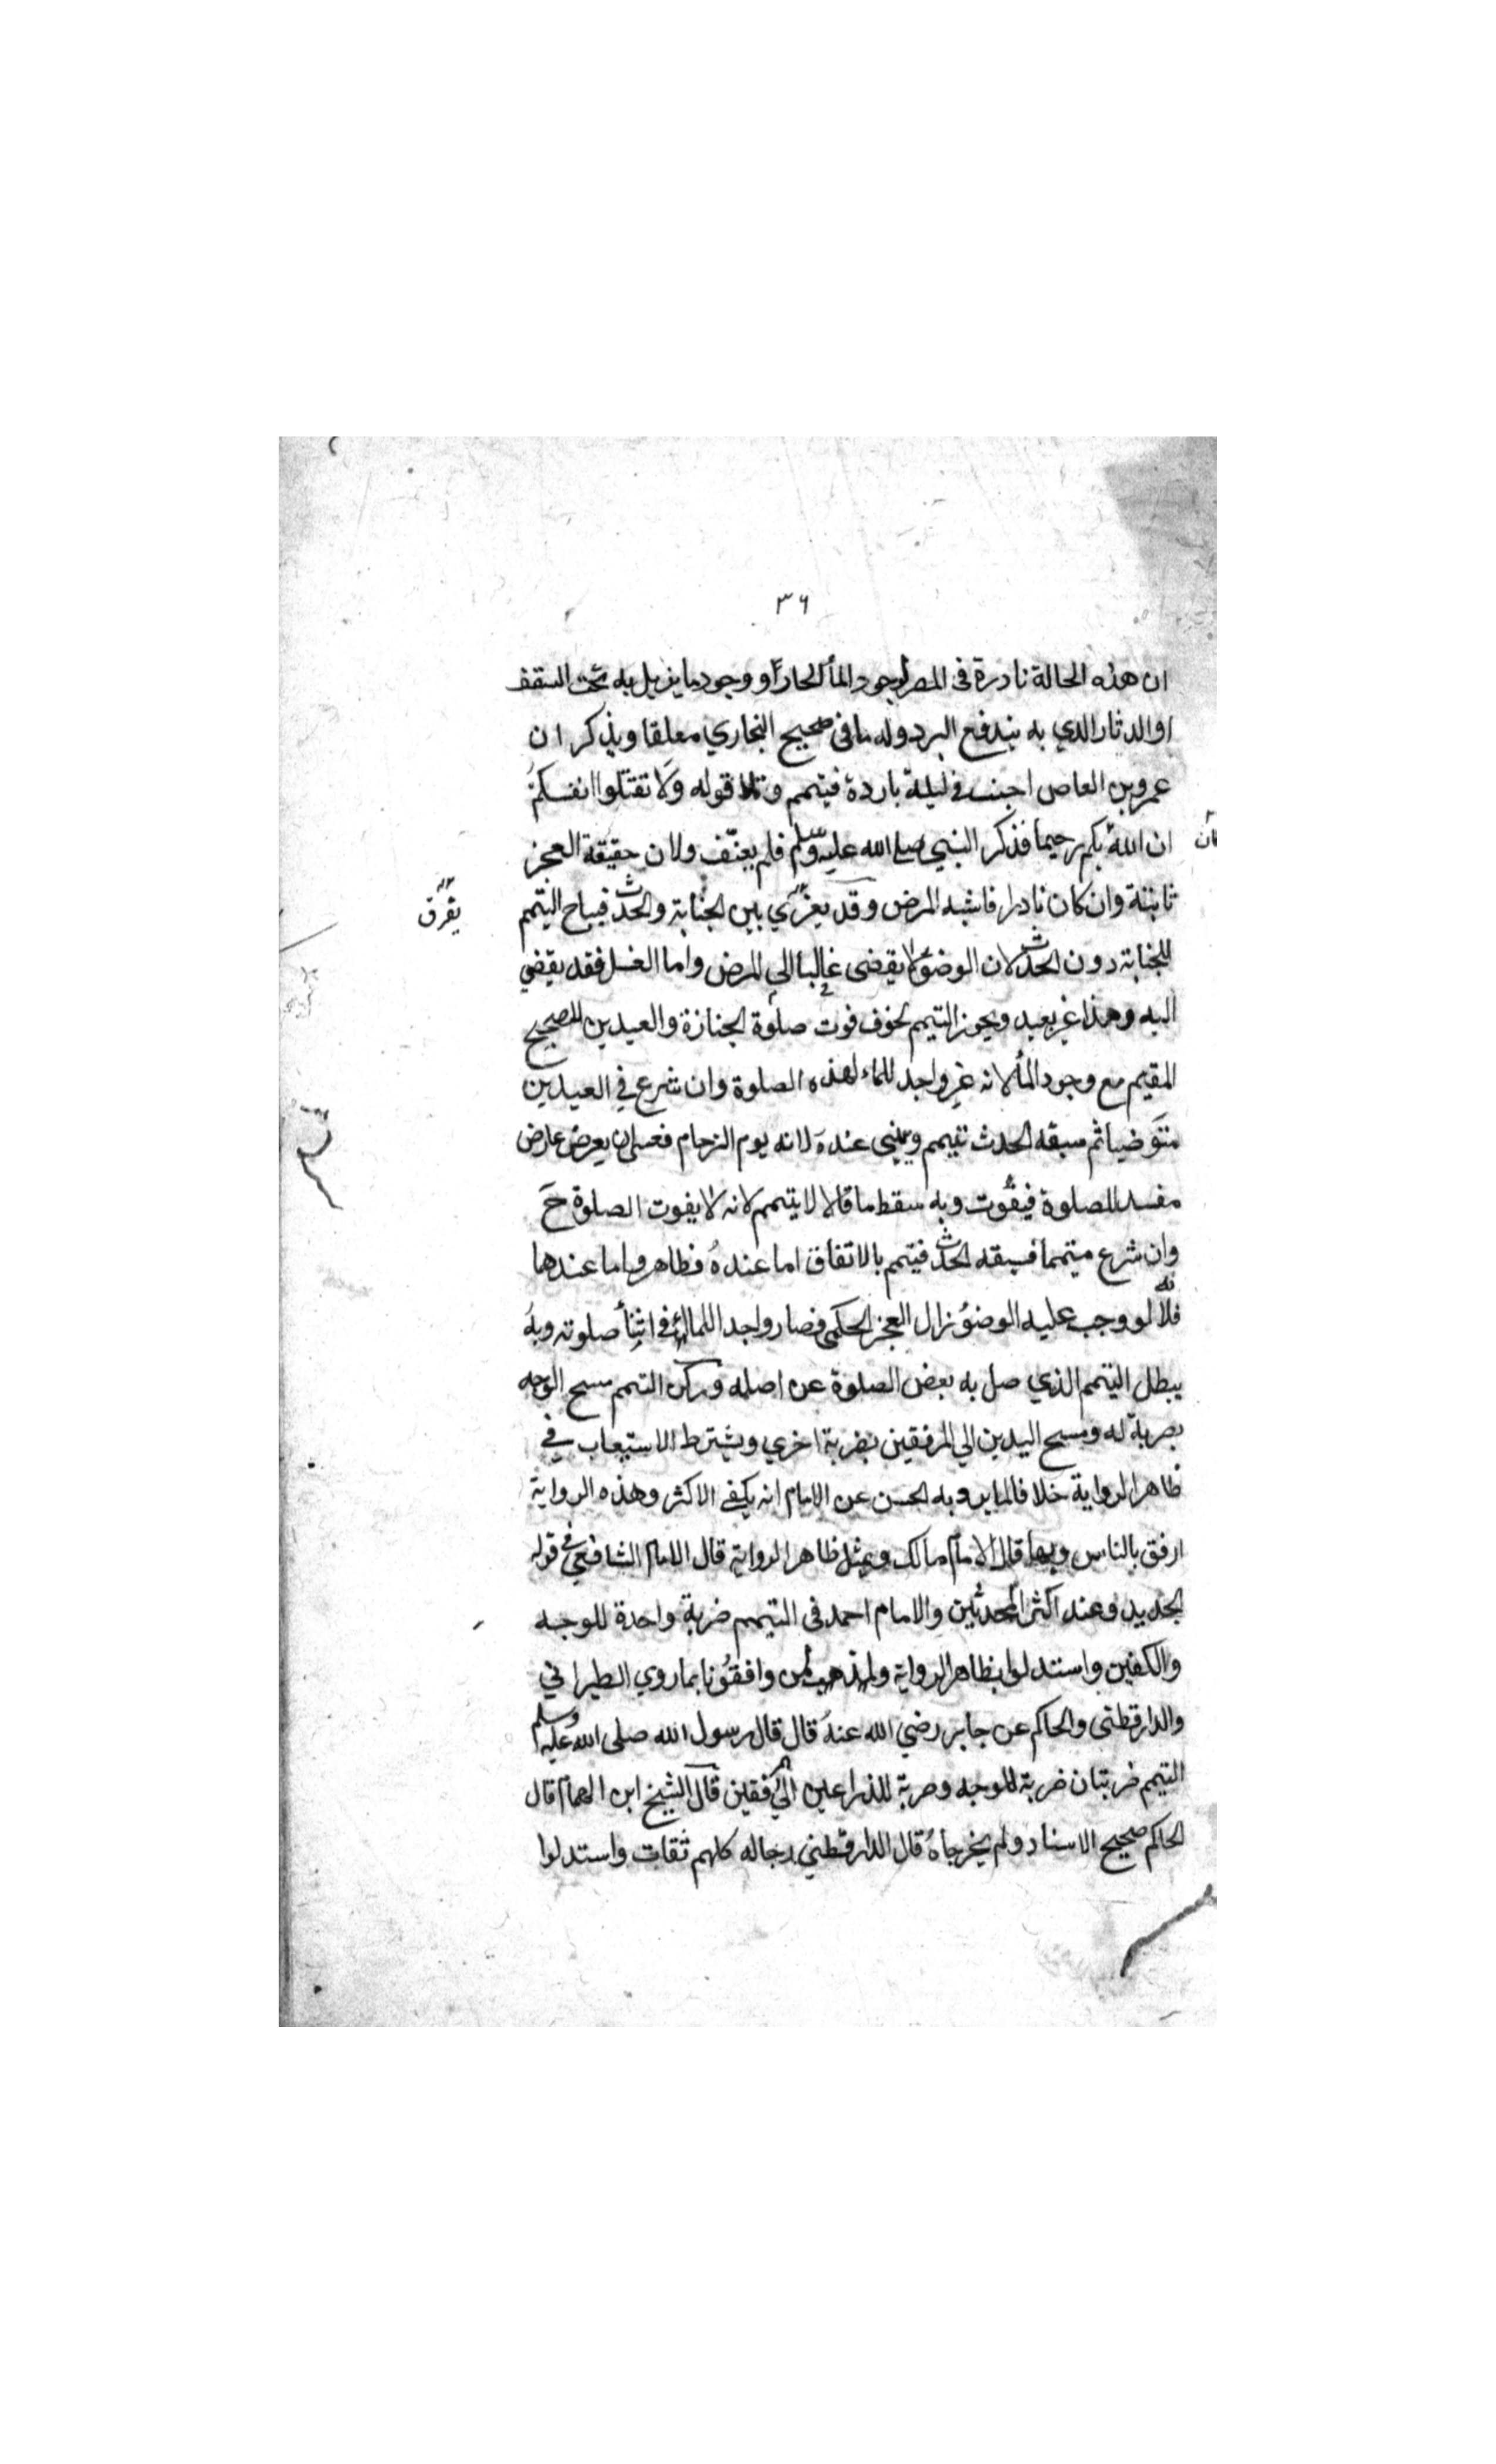 ٣٦
ان هذه الحالة نادرة فى المصر لوجود المأ الحار او وجود ما يزيل به تحت السقف
او الدثار الذي به يندفع البرد وله ما فى صحيح البخاري معلقا ويذكر ان
عمرو بن العاص اجنب فى ليلة باردة فيتمم وتلا قوله ولا تقتلوا انفسكم
ان الله بكم رحيما فذكر النبي صلى الله عليه وسلم فلم يعنّف ولان حقيقة العجز
كان
ثابتة وان كان نادرا فاشبه المرض وقد يعزي بين الجنابة والحدث فيباح التيمم
يفرق
للجنابة دون الحدث لان الوضؤ لا يقضى غالبا الي المرض واما الغسل فقد يقضي
اليه وهذا غير بعيد ويجوز التيمم لخوف فوت صلوة الجنازة والعيدين للصحيح
المقيم مع وجود المأ لانه غير واجد للماء لهذه الصلوة وان شرع في العيدين
متوضيا ثم سبقه الحدث تيمم ويبني عنده لانه يوم الزحام فعسى ان يعرض عارض
مفسد للصلوة فيفوت وبه سقط ما قالا لا يتيمم لانه لا يفوت الصلوة ح
وان شرع متيمما فسبقه الحدث فيتمم بالاتفاق اما عنده فظاهر واما عندهما
فلانه لو وجب عليه الوضؤ زال العجز الحكمى فصار واجدا للمأ فى اثنأ صلوته وبه
يبطل التيمم الذي صل به بعض الصلوة عن اصله وركن التيمم مسح الوجه
بضربة له ومسح اليدين الي المرفقين بضربة اخري ويشترط الاستيعاب في
ظاهر الرواية خلافا لما يرويه الحسن عن الامام انه يكفى الاكثر وهذه الرواية
ارفق بالناس وبها قال الامام مالك وبمثل ظاهر الرواية قال الامام الشافعي فى قوله
الجديد وعند اكثر المحدثين والامام احمد فى التيمم ضربة واحدة للوجه
والكفين واستدلوا بظاهر الرواية ولمذهب من وافقونا بما روي الطبراني
والدارقطنى والحاكم عن جابر رضي الله عنه قال قال رسول الله صلى الله عليه وسلم
التيمم ضربتان ضربة للوجه وضربة للذراعين الي المرفقين قال الشيخ ابن الهمام قال
الحاكم صحيح الاسناد ولم يخرجاه قال الدارقطني رجاله كلهم ثقات واستدلوا